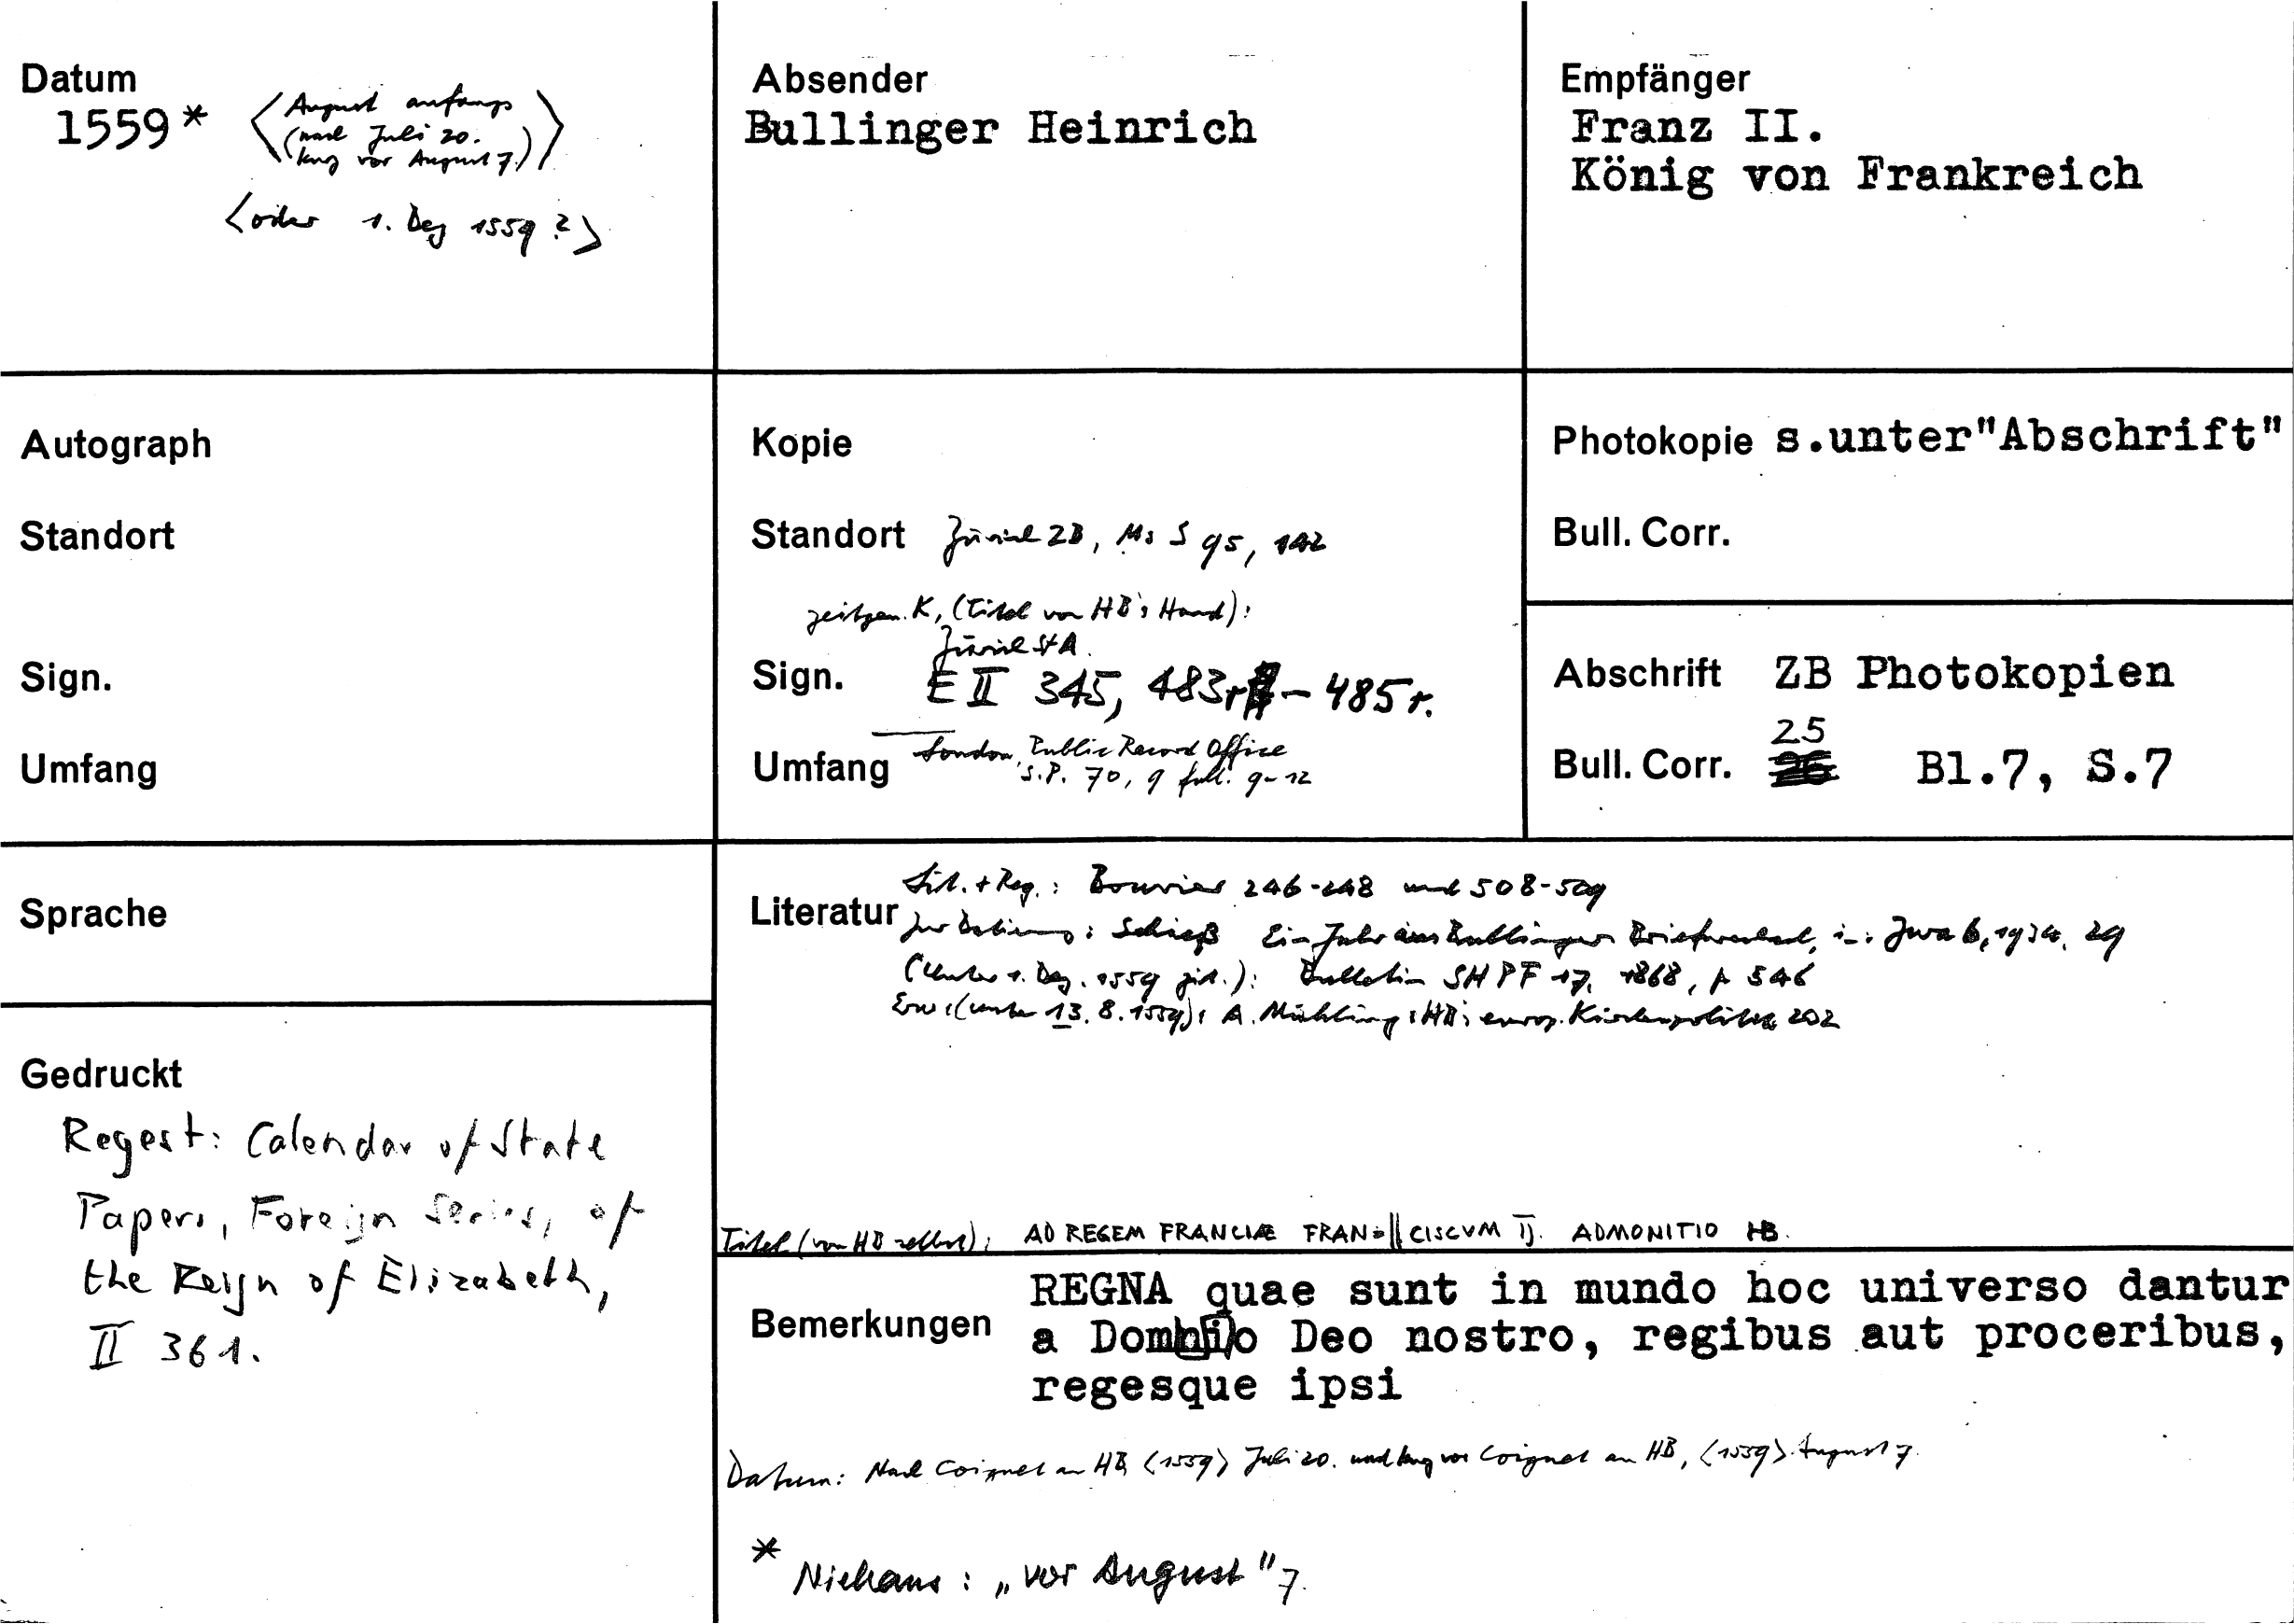 Datum
1559*
〈August anfangs
(nach Juli 20.
kurz vor August 7.)〉
〈oder 1. Dez 1559?〉
Absender
Bullinger Heinrich
Empfänger
Franz II.
König von Frankreich
Autograph
Standort
Sign.
Umfang
Kopie
Standort Zürich ZB, Ms S 95, 142
zeitgen. K, (Titel von HB's Hand):
Zürich StA.
Sign. E II 345, 483r - 485r.
Umfang London, Public Record Office
S.P. 70, 9 foll. 9-12
Photokopie s.unter"Abschrift"
Bull. Corr.
Abschrift ZB Photokopien
25
Bull. Corr. Bl.7, S.7
Sprache
Gedruckt
Regest: Calendar of State
Papers, Foreign Series, of
the Reign of Elizabeth,
II 361.
Lit. + Reg.: Bouvier 246-248 und 508-509
Literatur zur Datierung: Schieß Ein Jahr aus Bullingers Briefwechsel, in: Zwa 6, 1934, 29
(unter 1. Dez. 1559 zit.): Bulletin SHPF 17, 1868, p 546
Erw. (unter 13.8.1559): A. Mühling: HBs europ. Kirchenpolitik 202
Titel (von HB selbst): AD REGEM FRANCIÆ FRAN=||CISCVM IJ. ADMONITIO HB.
Bemerkungen
REGNA quae sunt in mundo hoc universo dantur
a Domino Deo nostro, regibus aut proceribus,
regesque ipsi
Datum: Nach Coignet an HB, 〈1559〉 Juli 20. und kurz vor Coignet an HB, 〈1559〉 August 7.
* Niehans: „vor August" 7.